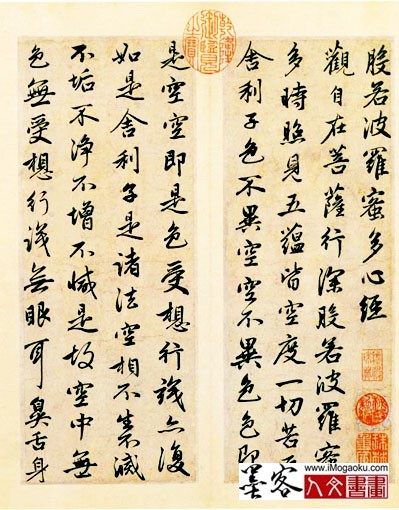 般若波羅蜜多心經
觀自在菩薩行深般若波羅蜜
多時照見五蘊皆空度一切苦
舍利子色不異空空不異色色即
是空空即是色受想行識亦復
如是舍利子是諸法空相不生不滅
不垢不淨不增不減是故空中無
色無受想行識無眼耳鼻舌身
墨客
www.iMogaoku.com
人文書畫